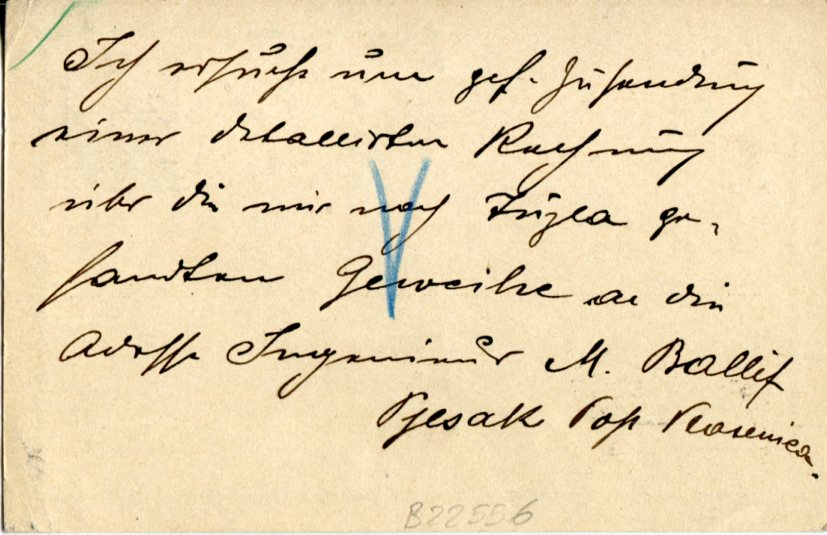 Ich ersuche um gef. Zusendung
einer detallirten Rechnung
über die mir nach Tuzla ge-
sandten Geweihe an die
Adresse Ingenieur M. Ballif
Pjesak Post Vlasenica.
B22556